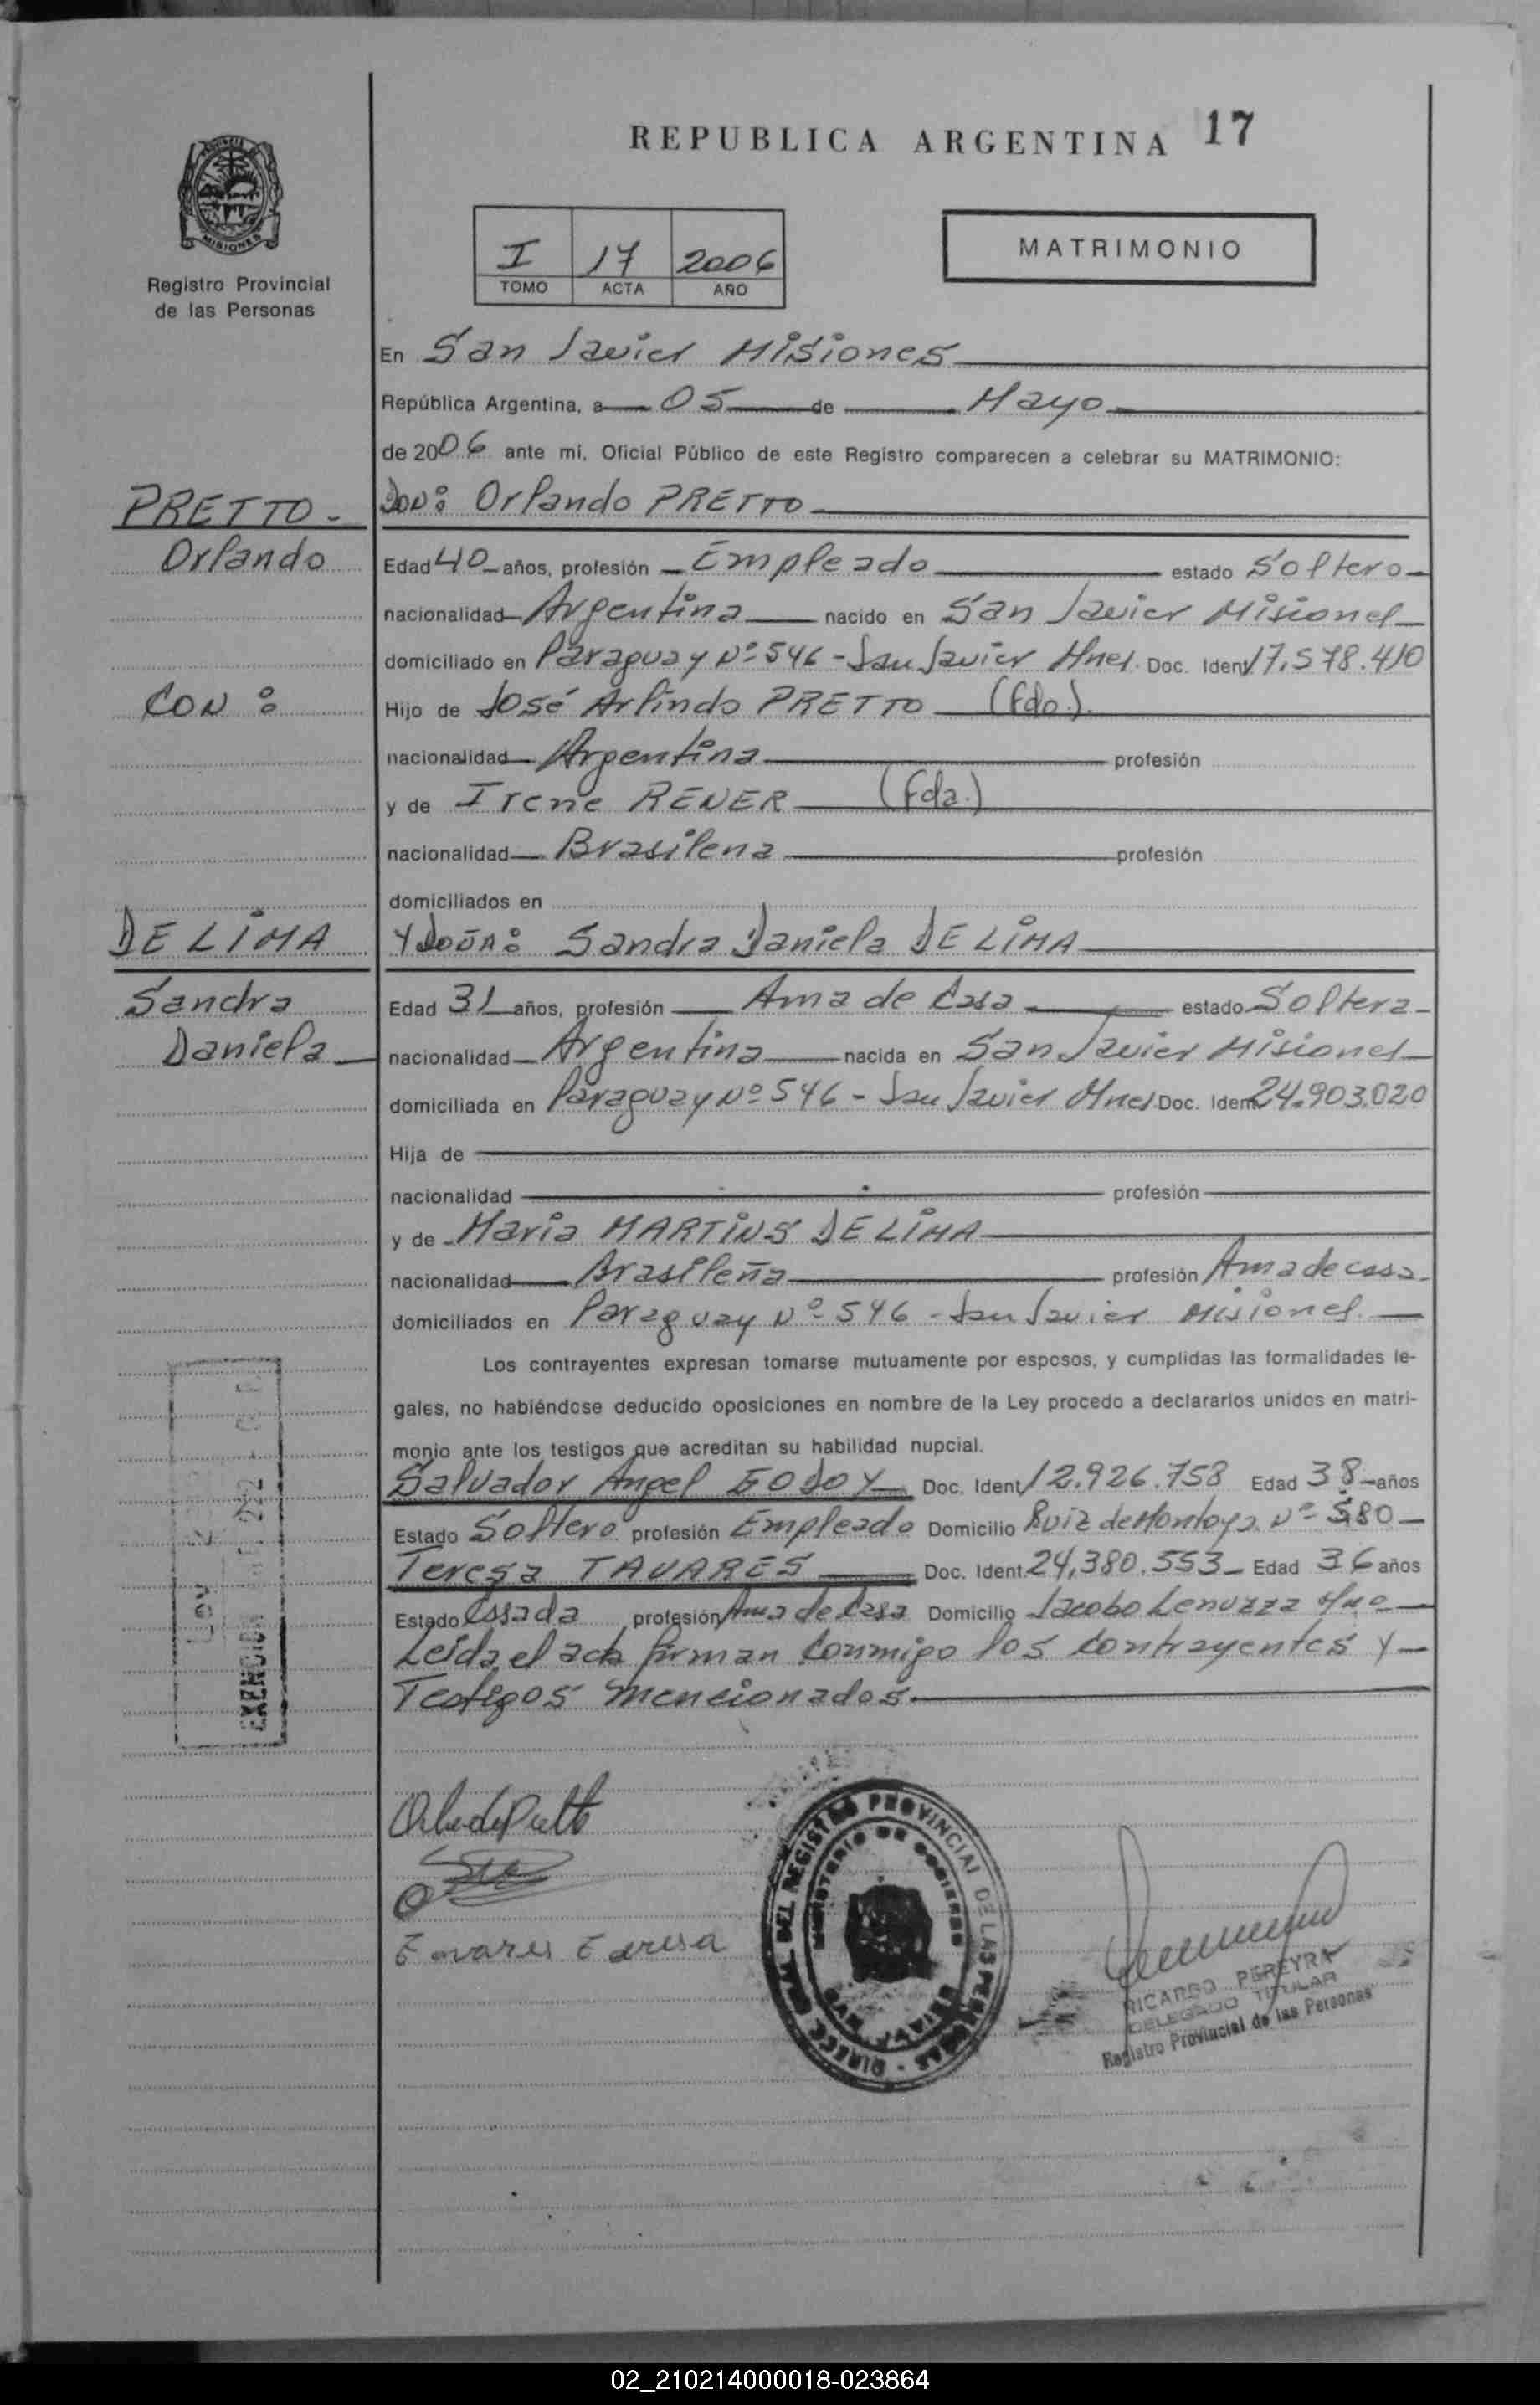 REPUBLICA ARGENTINA 17
MISIONES
Registro Provincial
de las Personas
I 17 2006
TOMO ACTA AÑO
MATRIMONIO
En San Javier Misiones
República Argentina, a 05 de Mayo
de 2006 ante mi, Oficial Público de este Registro comparecen a celebrar su MATRIMONIO:
PRETTO -
Orlando
CON :
DE LIMA
Sandra
Daniela
DON: Orlando PRETTO
Edad 40 años, profesión Empleado estado Soltero
nacionalidad Argentina nacido en San Javier Misiones
domiciliado en Paraguay Nº 546 - San Javier Mnes. Doc. Ident 17.578.410
Hijo de José Arlindo PRETTO (Fdo.)
nacionalidad Argentina profesión
y de Irene RENER (Fda.)
nacionalidad Brasilena profesión
domiciliados en
Y DOÑA: Sandra Daniela DE LIMA
Edad 31 años, profesión Ama de Casa estado Soltera
nacionalidad Argentina nacida en San Javier Misiones
domiciliada en Paraguay Nº 546 - San Javier Mnes Doc. Ident 24.903.020
Hija de
nacionalidad profesión
y de Maria MARTINS DE LIMA
nacionalidad Brasileña profesión Ama de casa
domiciliados en Paraguay Nº 546 - San Javier Misiones.
Los contrayentes expresan tomarse mutuamente por esposos, y cumplidas las formalidades le-
gales, no habiéndose deducido oposiciones en nombre de la Ley procedo a declararlos unidos en matri-
monio ante los testigos que acreditan su habilidad nupcial.
Salvador Angel GODOY Doc. Ident 12.926.758 Edad 38 años
Estado Soltero profesión Empleado Domicilio Ruiz de Montoya Nº 580
Teresa TAVARES Doc. Ident. 24,380.553 Edad 36 años
Estado Casada profesión Ama de Casa Domicilio Jacobo Lenuzza
Leida el acta firman conmigo los contrayentes y
Testigos mencionados.
LEY
EXENCION
Tavares Teresa
DIRECC. GRAL. DEL REGISTRO PROVINCIAL DE LAS PERSONAS
MINISTERIO DE GOBIERNO
RICARDO PEREYRA
DELEGADO TITULAR
Registro Provincial de las Personas
02_210214000018-023864